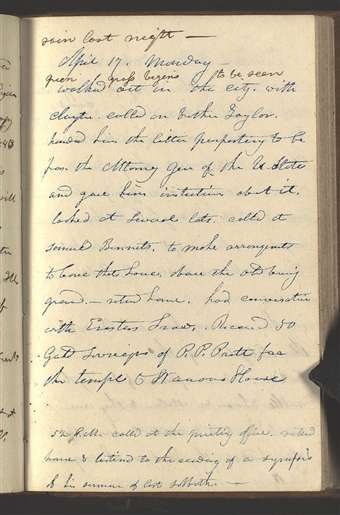 rain last night —
April 17. Monday —
green grass begins to be seen
walked out in the city. with
Clayton. called on Brother Taylor.
handed him the letter purporting to be
from the Attorney Gen of the U. State
and gave him instructions about it.
looked at several lots. called at
Samuel Bennets. to make arrangements
to leave that house.
the old burying
ground. — returned home. had conversation
with Erastus Snow. Received 50
Gold Sovreigns of P. P. Pratt for
the temple & Nauvoo House
5½ P.M. called at the printing office. retired
home & listend to the reading of a synopsis
of his sermon of last sabbath. —